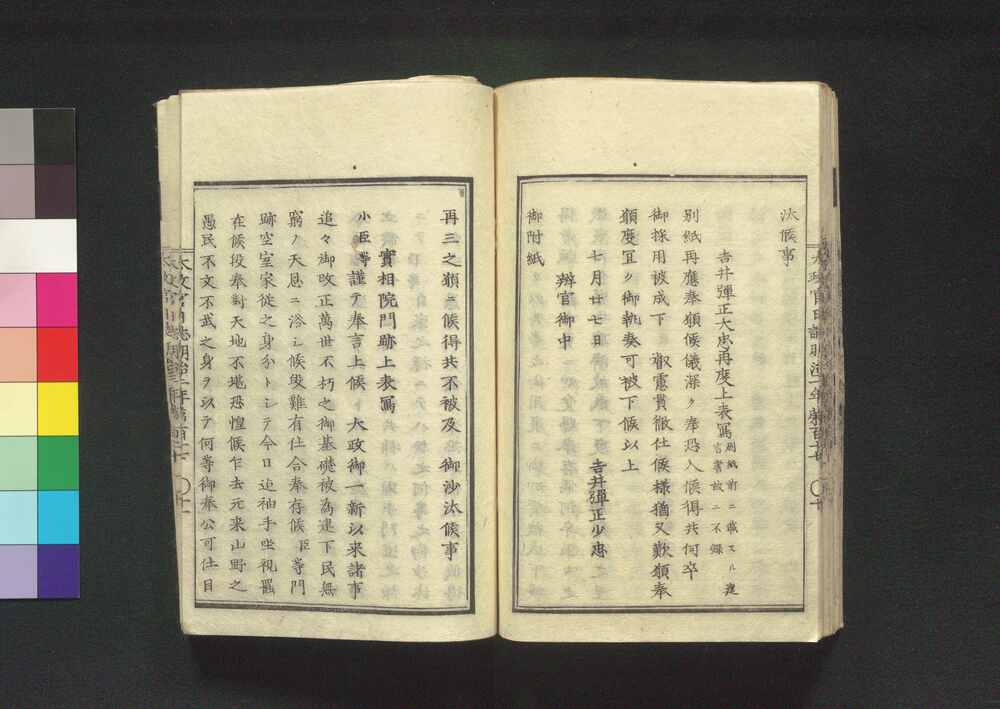 汰候事
吉井彈正大忠再度上表寫 別紙前ニ載スル建
言書故ニ不録
別紙再應奉願候儀深ク奉恐入候得共何卒
御採用被成下 叡慮貫徹仕候様猶又歎願奉
願度宜ク御執奏可被下候以上
七月廿七日 吉井彈正少忠
辨官御中
御附紙
再三之願ニ候得共不被及 御沙汰候事
實相院門跡上表寫
小臣等謹テ奉言上候 大政御一新以来諸事
追々御改正萬世不朽之御基礎被為建下民無
窮ノ天恩ニ浴シ候段難有仕合奉存候臣等門
跡空室家従之身分トシテ今日迠袖手坐視罷
在候役奉對天地不堪恐惶候乍去元来山野之
愚民不文不武之身ヲ以テ何等御奉公可仕目
太政官日誌明治二年第百二十